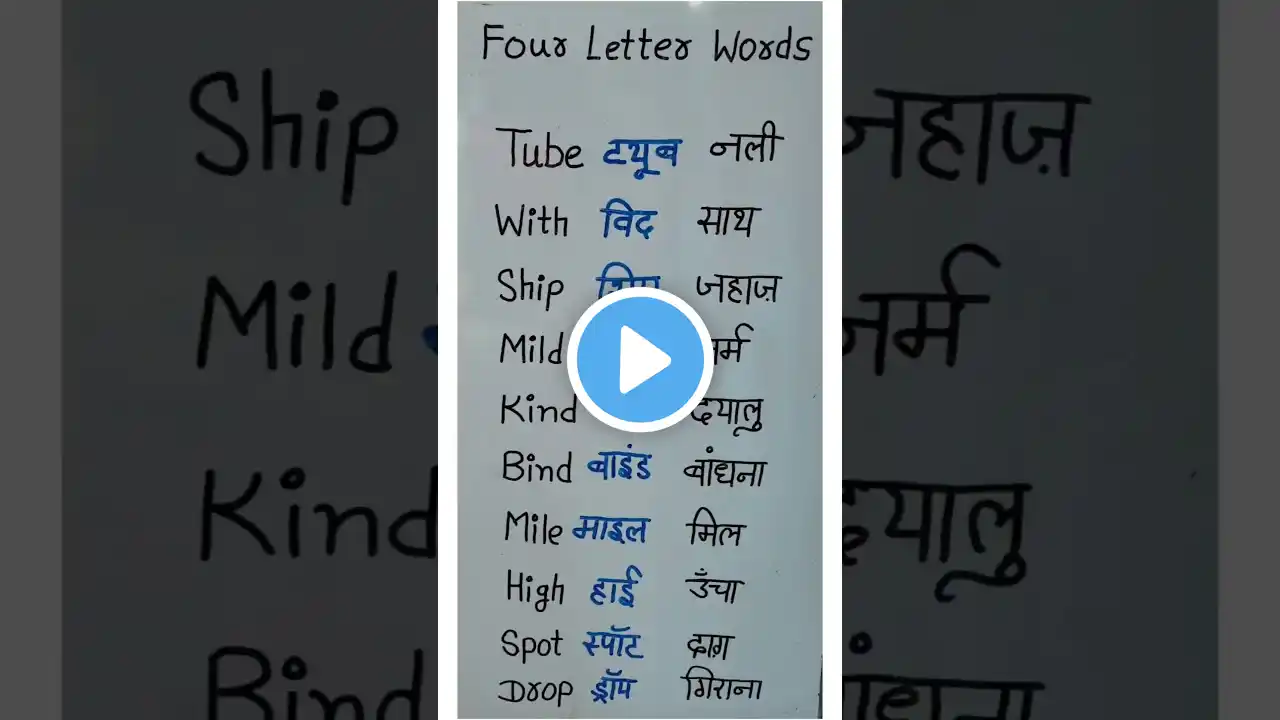 Four Letter Words
Tube टयूब नली
With विद साथ
Ship जहाज़
Mild
Kind दयालु
Bind बाइंड बांधना
Mile माइल मिल
High हाई उँचा
Spot स्पॉट दाग़
Drop ड्रॉप गिराना